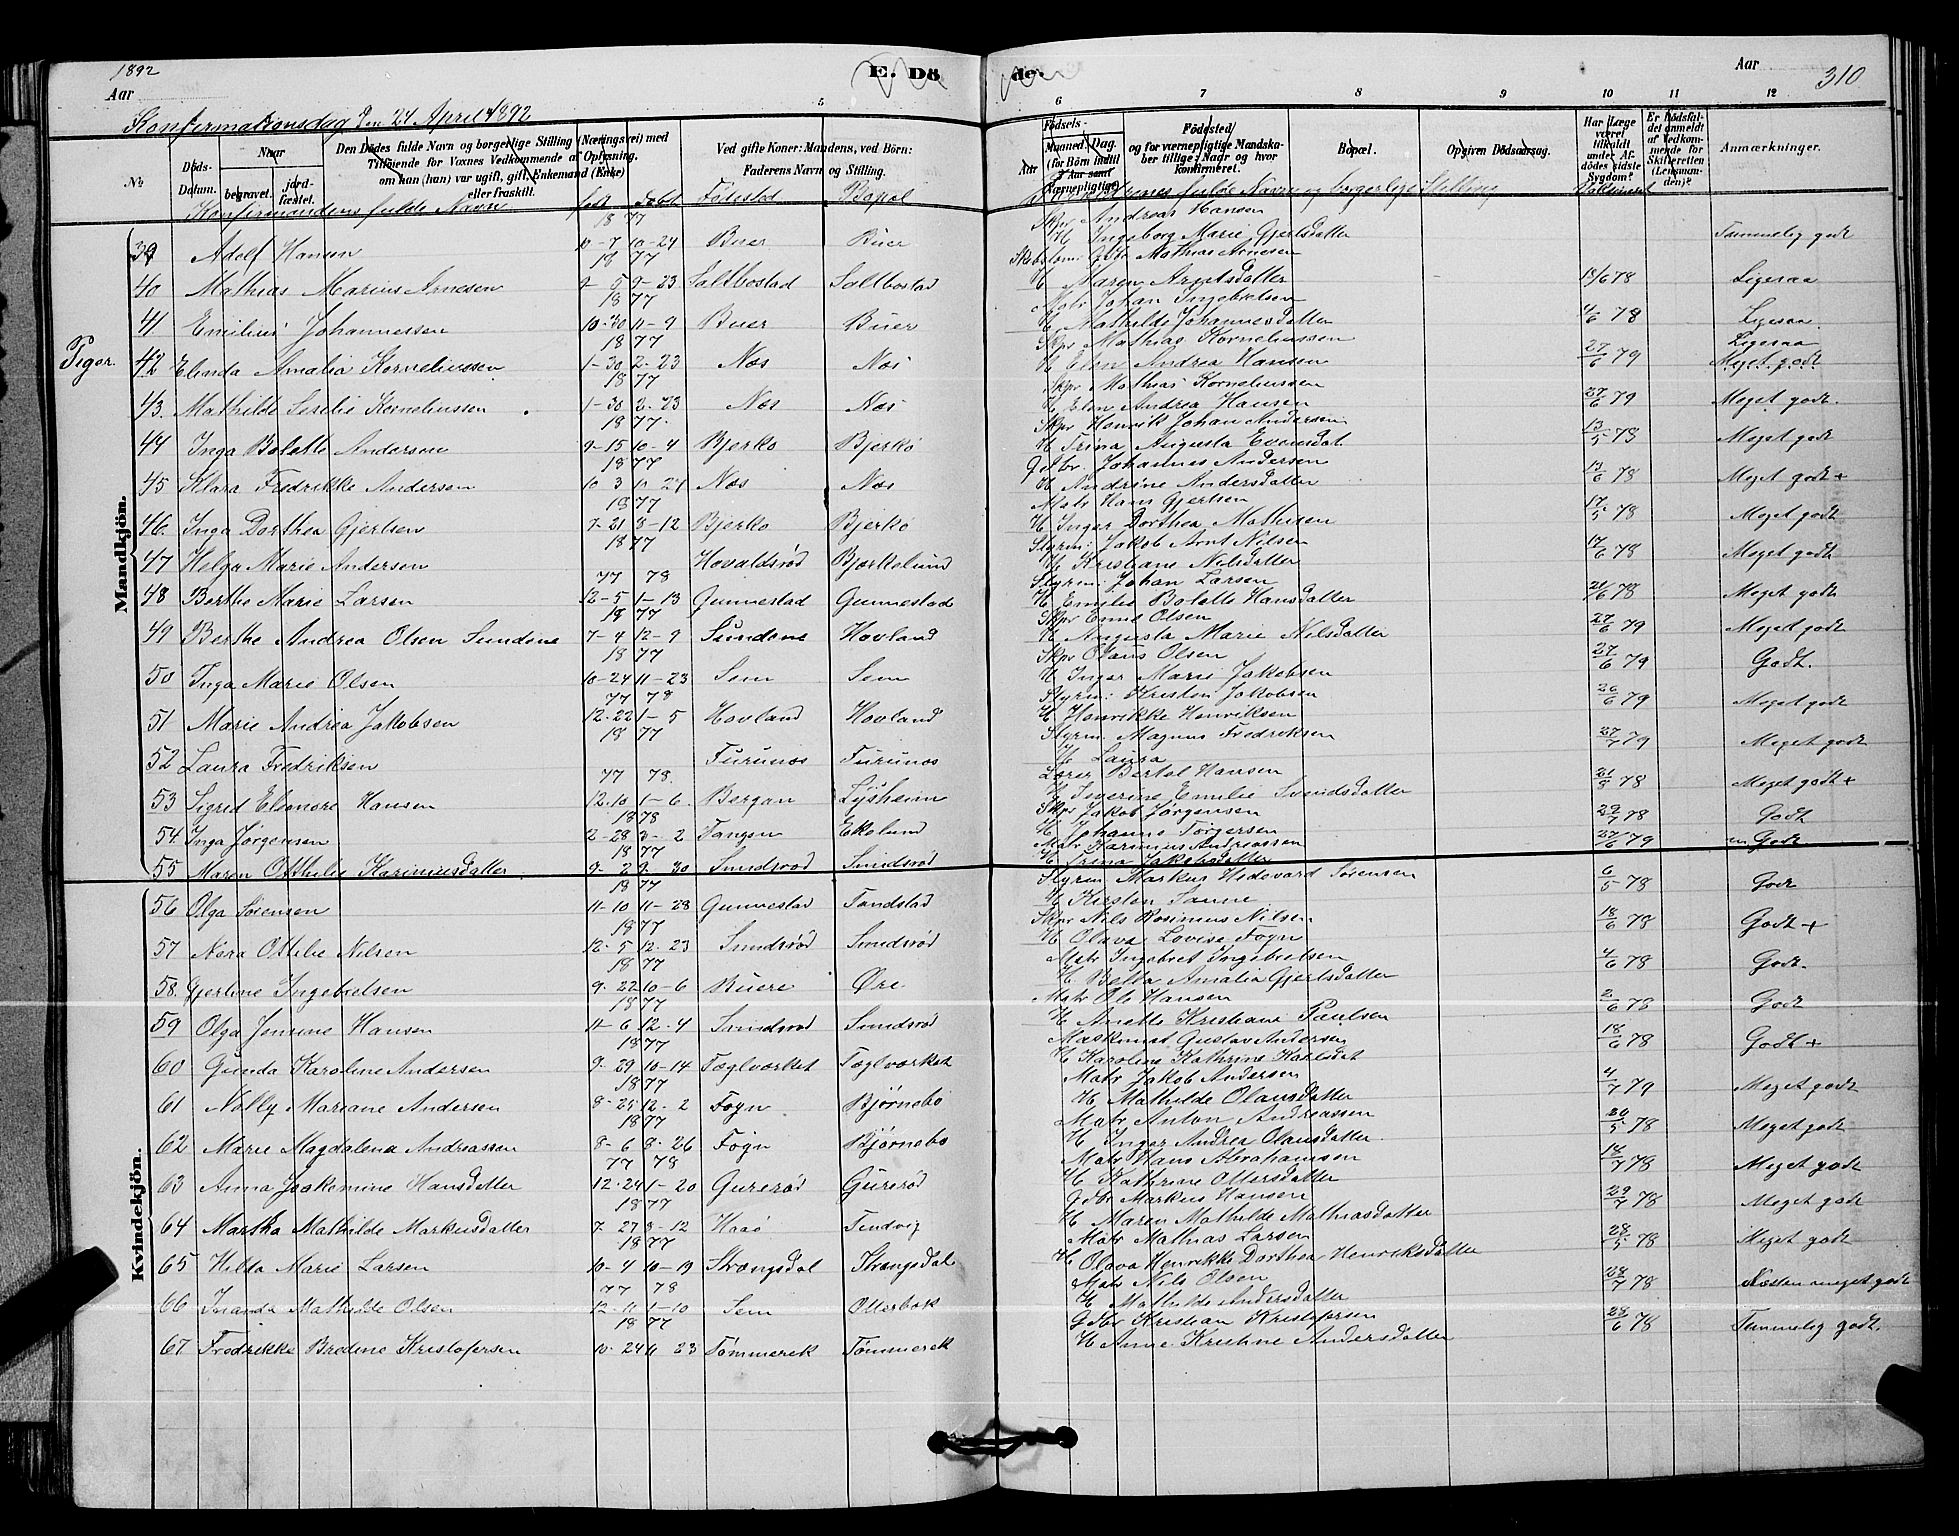 1892
Aar
E. Dö
de.
Aar
310
Konfirmationsdag den 24 April 1892
5
6
7
8
9
10
11
12
No.
Döds-Datum.
Naar
begravet.
jord-fæstet.
Den Dödes fulde Navn og borgerlige Stilling (Næringsvei) med
Tilföiende for Voxnes Vedkommende af Oplysning,
om han (hun) var ugift, gift, Enkemand (Enke)
eller fraskilt.
Ved gifte Koner: Mandens, ved Börn:
Faderens Navn og Stilling.
Födsels-
Aar
Maaned. Dag.
(for Börn indtil
2 Aar samt
Værnepligtige)
Födested
og for værnepligtige Mandska-
ber tillige: Naar og hvor
konfirmeret.
Bopæl.
Opgiven Dödsaarsag.
Har Læge
været
tilkaldt
under Af-
dödes sidste
Sygdom?
Er Dödsfal-
det anmeldt
af Vedkom-
mende for
Skifteretten
(Lensman-
den)?
Anmærkninger.
Konfirmandens fulde Navn født Døbt Fødested Bopæl fulde Navn og borgerlige Stilling Vaksineret
Mandkjön.
Kvindekjön.
Piger.
18 77 Skpr Andreas Hansen
39 Adolf Hansen 10-7 10-24 Buer Buer H Ingeborg Marie Gjertsdatter Temmelig godt
18 77 Mathias Arnesen
40 Mathias Marius Arnesen 9-5 9-23 Saltbostad Saltbostad H Maren Arntsdatter 18/6 78 Ligesaa
18 77 Matr Johan Ingebretsen
41 Emilius Johannessen 10-30 11-9 Buer Buer H Mathilde Johannesdatter 4/6 78 Ligesaa.
18 77 Skpr Mathias Korneliussen Ligesaa
42 Elinda Amalia Korneliussen 1-30 2-23 Næs Næs H Elen Andrea Hansen 27/6 79 Meget godt
18 77 Skpr Mathias Korneliussen
43. Mathilde Serelie Korneliussen 1-30 2-23 Næs Næs H Elen Andrea Hansen 27/6 79 Meget godt.
18 77 Skpr Henrik Johan Andersen
44 Inga Bolette Andersen 9-15 10-4 Bjerkø Bjerkø H Trina Augusta Evensdat 13/5 78 Meget godt
18 77 Gdbr. Johannes Andersen
45 Klara Fredrikke Andersen 10 3 10 21 Næs Næs H Andrine Andersdatter 13/6 78 Meget godt +
18 77 Matr Hans Gjertsen
46. Inga Dorthea Gjertsen 7-21 8-12 Bjerkø Bjerkø H Inger Dorthea Mathisen 17/5 78 Meget godt
18 77 Styrm: Jakob Arnt Nilsen
47 Helga Marie Andersen Hovaldsrød Bjerkelund H Kristiane Nilsdatter 17/6 78 Meget godt
77 78 Styrm: Johan Larsen
48 Berthe Marie Larsen 12-5 1-13 Gunnestad Gunnestad H Emelie Bolette Hansdatter 21/6 78 Meget godt
18 77 Skpr Enne Olsen
49 Berthe Andrea Olsen Sundene 7-4 12-9 Sundene Hovland H Augusta Marie Nilsdatter 27/6 79 Meget godt
18 77 Skpr Olaus Olsen
50 Inga Marie Olsen 10-24 11-23 Sem Sem H Inger Marie Jakobsen 27/6 79 Godt.
77 78 Styrm: Kristen Jakobsen
51 Marie Andrea Jakobsen 12-22 1-5 Hovland Hovland H Henrikke Henriksen 26/6 79 Meget godt
18 77 Styrm. Magnus Fredriksen
52 Laura Fredriksen Furunæs Furunæs H Laura 27/7 79 Meget godt
77 78. Lærer Bertel Hansen
53 Sigrid Eleonore Hansen 12.10 1-6 Bergan Lysheim H Severine Emilie Svendsdatter 21/8 78 Meget godt +
1878 Skpr Jakob Jørgensen
54. Inga Jørgensen 2-28 3-2 Tangen Ekelund H Johanne Torgersen 29/7 78 Godt
18 77 Matr Karinius Andreassen
55 Maren Otthilie Kariniusdatter 9-2 9-30 Smidsrød Smidsrød H Trina Jakobsdatter 27/6 79 Godt
18 77 Styrm Markus Hedevard Sørensen
56 Olga Sørensen 11-10 11-28 Gunnestad Tandstad H Kirsten Sanne 6/5 78 Godt
18 77 Skpr Nils Rosinius Nilsen
57 Nora Ottilie Nilsen 12-5 12-23 Smidsrød Smidsrød H Olava Lovise Fogn 18/6 78 Godt +
18 77 Matr Ingebret Ingebretsen
58. Gjerline Ingebretsen 9.22 10-6 Buere Øre H Bella Amalia Gjertsdatter 4/6 78 Godt.
18 77 Matr Ole Hansen
59 Olga Jensine Hansen 11-6 12.4 Smidsrød Smidsrød H Anette Kristiane Paulsen 2/6 78 Godt
18 77 Maskinist Gustav Andersen
60 Gunda Karoline Andersen 9-29 10-14 Teglværket Teglværket H Karoline Kathrine Karlsdat 18/6 78 Godt +
18 77 Matr Jakob Andersen
61 Nelly Mariane Andersen 8-25 12-2 Fogn Bjørnebo H Mathilde Olausdatter 4/7 79 Meget godt
18 77 Matr Anton Andreassen
62 Marie Magdalena Andreassen 8-6 8-26 Fogn Bjørnebo H Inger Andrea Olausdatter. 20/5 78 Meget godt
77 78 Matr Hans Abrahamsen
63 Anna Joakimine Hansdatter 12-24 1-20 Gurerød Gurerød H Kathrine Ottersdatter 18/7 78 Meget godt
18 77 Gdbr Markus Hansen
64 Martha Mathilde Markusdatter 7-27 8-12 Haaø Tendvig H Maren Mathilde Mathiasdatter 29/7 78 Meget godt
18 77 Matr Mathias Larsen
65 Hilda Marie Larsen 10-4 10-19 Strengsdal Strengsdal H Olava Henrikke Dorthea Henriksdatter 28/5 78 Meget godt
77 78 Matr Nils Olsen
66 Inanda Mathilde Olsen 12-11 1-10 Sem Otterbæk H Mathilde Andersdatter 28/7 78 Næsten meget godt
18 77 Gdbr Kristian Kristofersen
67 Fredrikke Bredine Kristofersen 10-24 23 Tømmerek Tømmerek H Anne Kristine Andersdatter 28/6 78 Temmelig godt.